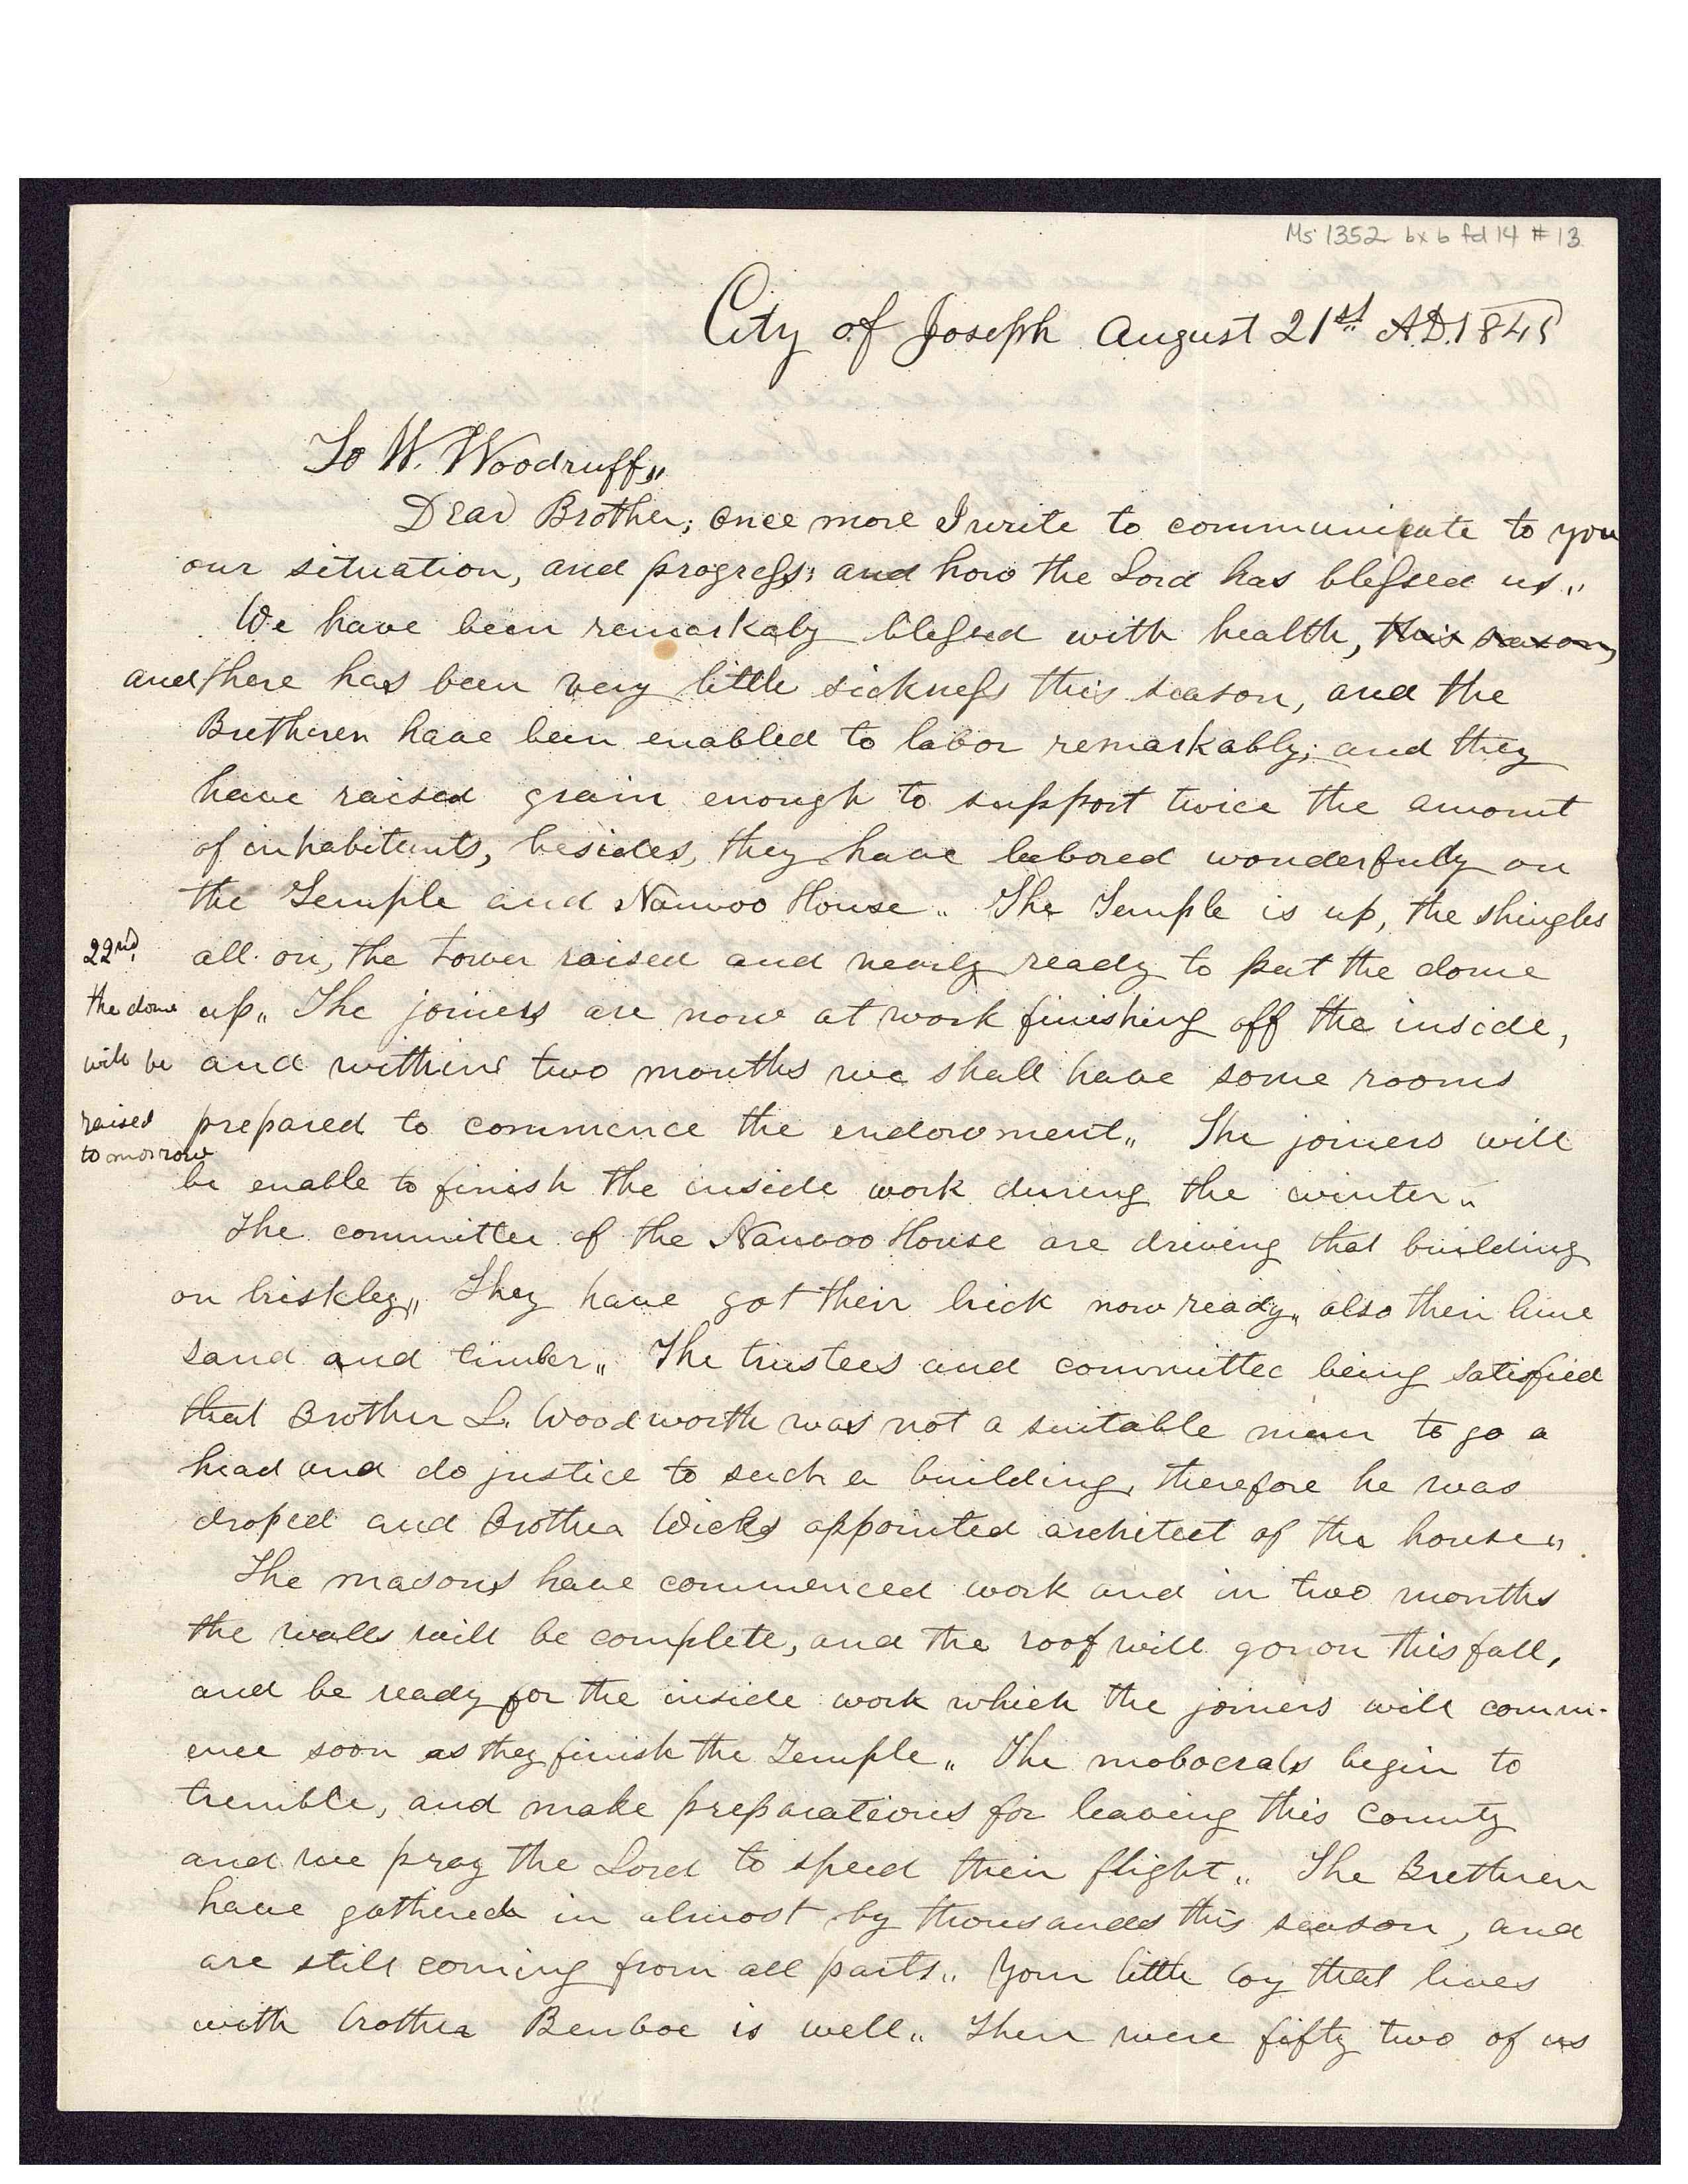 Ms 1352 bx 6 fd 14 #13
City of Joseph August 21st A.D. 1845
To W. Woodruff,,
Dear Brother; once more I write to communicate to you
our situation, and progress; and how the Lord has blessed us,,
We have been remarkaly blessed with health, this season,
and there has been very little sickness this season, and the
Bretheren have been enabled to labor remarkably; and they
have raised grain enough to support twice the amont
of inhabitants, besides, they have labored wonderfully on
the Temple and Nauvoo House,, The Temple is up, the shingles
all on, the tower raised and nearly ready to put the dome
up,, The joiners are now at work finishing off the inside,
and within two months we shall have some rooms
prepared to commence the endowment,, The joiners will
be enable to finish the inside work during the winter,,
22nd,
the dome
will be
raised
tomorrow
The committee of the Nauvoo House are driving that building
on briskley,, They have got their brick now ready,, also their lime
sand and timber,, The trustees and committee being satisfied
that Brother L. Woodworth was not a suitable man to go a
head and do justice to such a building, therefore he was
droped and Brother Wicks appointed architect of the house,,
The masons have commenced work and in two months
the walls will be complete, and the roof will go on this fall,
and be ready for the inside work which the joiners will comm-
ence soon as they finish the Temple,, The mobocrats begin to
tremble, and make preparations for leaving this county
and we pray the Lord to speed their flight,, The Brethren
have gathered in almost by thousands this season, and
are still coming from all parts,, Your little boy that lives
with brother Benboe is well,, There were fifty two of us